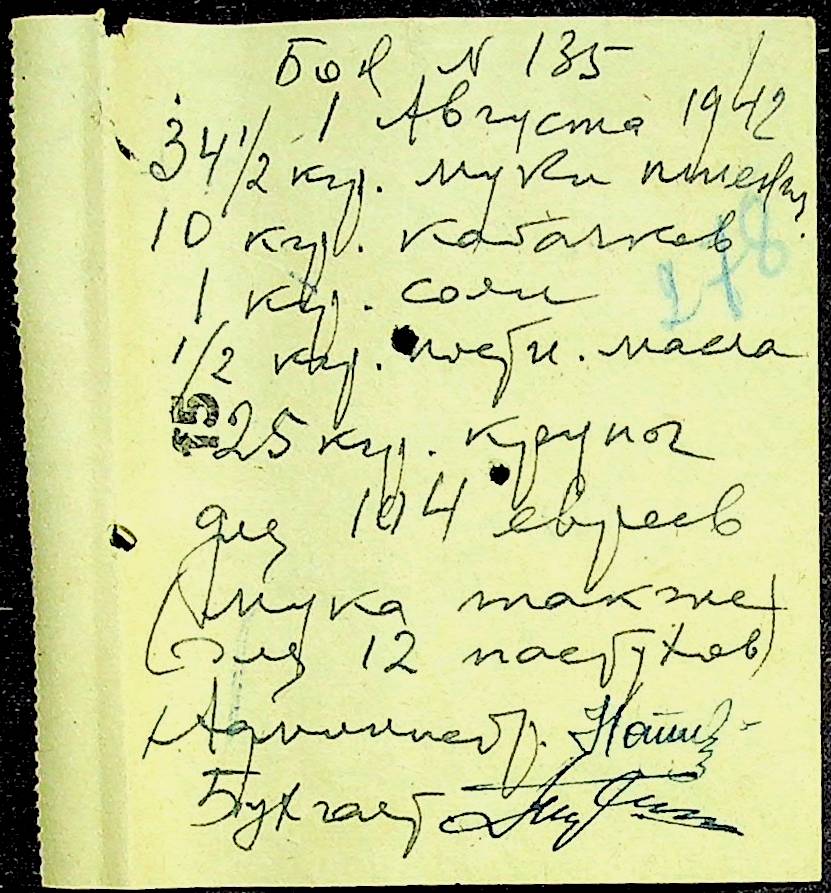 Бон N 135
1 Августа 1942
34 1/2 кгр. муки пшенич.
10 кгр. кабачков
278
1 кгр. соли
1/2 кгр. постн. масла
15
25 кгр. крупы
для 104 евреев
(мука также
для 12 пастухов)
Администр.
Бухгалт